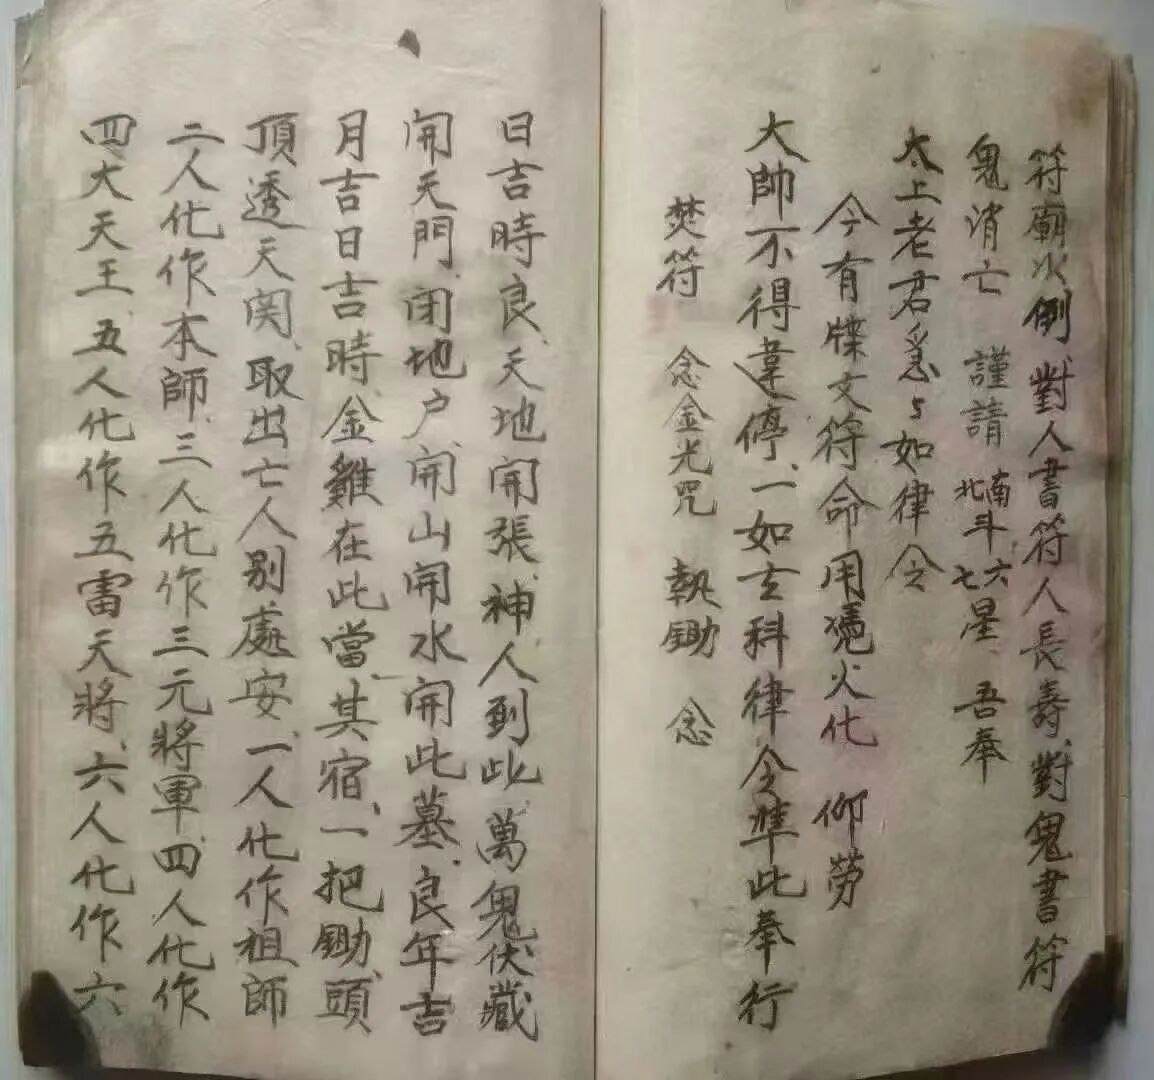 符廟水倒對人書符人長壽對鬼書符
鬼消亡 謹請 南北斗六七星 吾奉
太上老君急々如律令
今有牒文符命用憑火化 仰勞
大帥不得違停、一如玄科律令準此奉行
焚符 念金光咒 執鋤 念
日吉時良、天地開張、神人到此、萬鬼伏藏
開天門、闭地户、開山開水開此墓、良年吉
月吉日吉時、金雞在此當、其宿、一把鋤頭
頂透天関、取出亡人别處安、一人化作祖師
二人化作本師、三人化作三元將軍、四人化作
四大天王、五人化作五雷天將、六人化作六